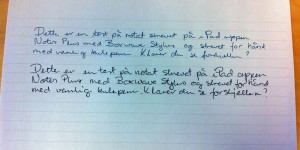 Dette er en test på notat skrevet på iPad appen
Notes Plus med Boxwave Stylus og skrevet for hånd
med vanlig kulepenn. Klarer du se forskjellen?
Dette er en test på notat skrevet på iPad appen
Notes Plus med Boxwave Stylus og skrevet for hånd
med vanlig kulepenn. Klarer du se forskjellen?